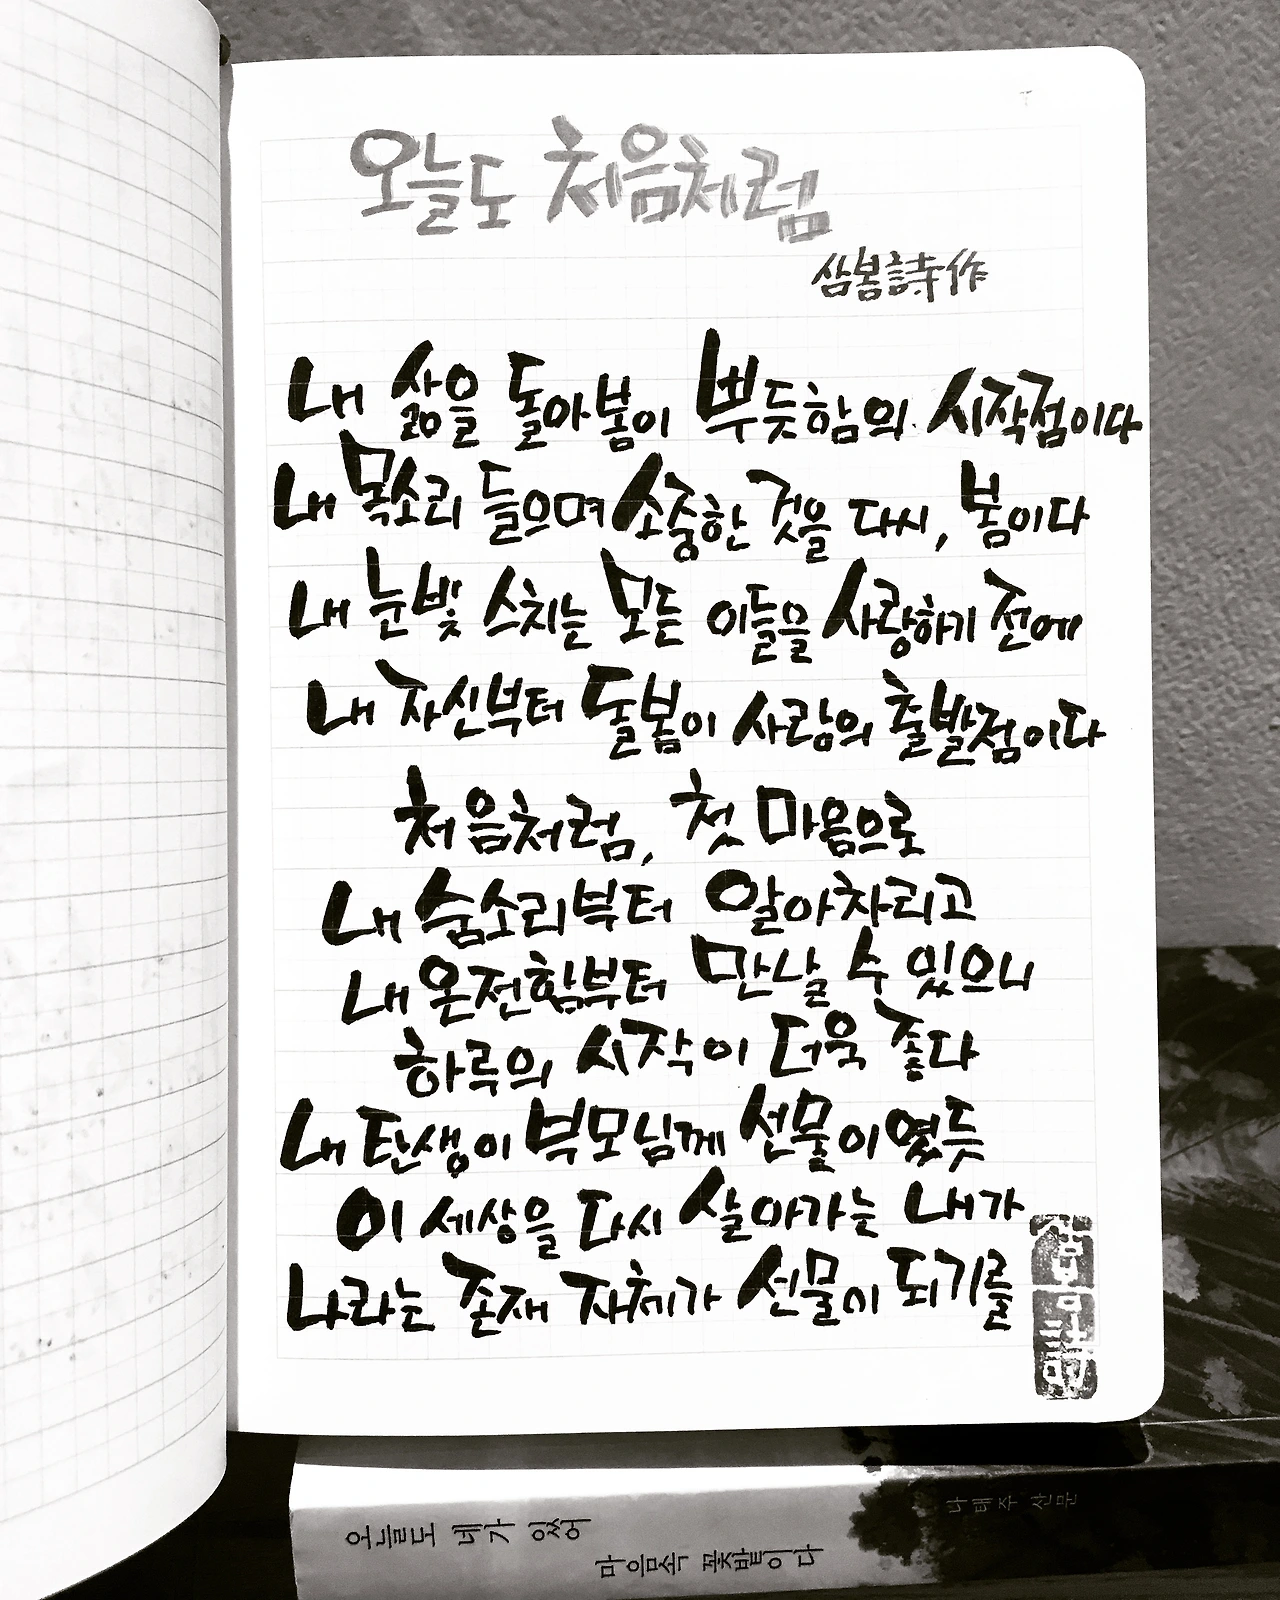 오늘도 처음처럼
삼봄詩作
내 삶을 돌아봄이 뿌듯함의 시작점이다
내 목소리 들으며 소중한 것을 다시, 봄이다
내 눈빛 스치는 모든 이들을 사랑하기 전에
내 자신부터 돌봄이 사랑의 출발점이다
처음처럼, 첫 마음으로
내 숨소리부터 알아차리고
내 온전함부터 만날 수 있으니
하루의 시작이 더욱 좋다
내 탄생이 부모님께 선물이였듯
이 세상을 다시 살아가는 내가
나라는 존재 자체가 선물이 되기를
삼봄詩
오늘도 네가 있어
마음속 꽃밭이다
나태주 산문